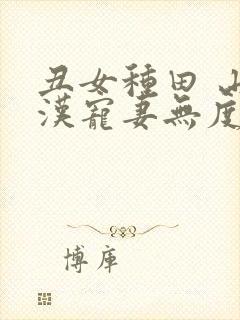 丑女種田 山
漢寵妻無度
博庫